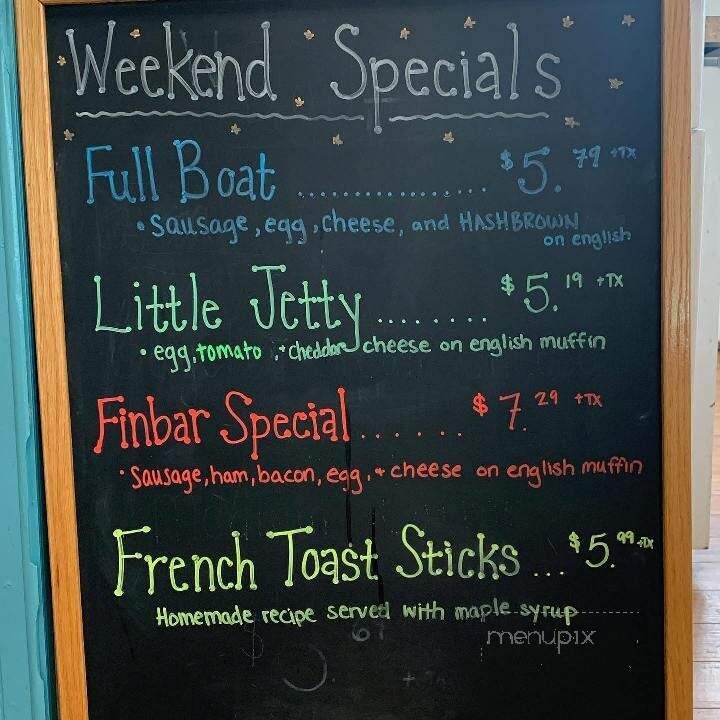 Weekend Specials
Full Boat ................. $5.79 +TX
• sausage, egg, cheese, and HASHBROWN
on english
Little Jetty ........ $5.19 +TX
• egg, tomato, + cheddar cheese on english muffin
Finbar Special ...... $7.29 +TX
• Sausage, ham, bacon, egg, + cheese on english muffin
French Toast Sticks ... $5.99 +TX
Homemade recipe served with maple syrup
menupix